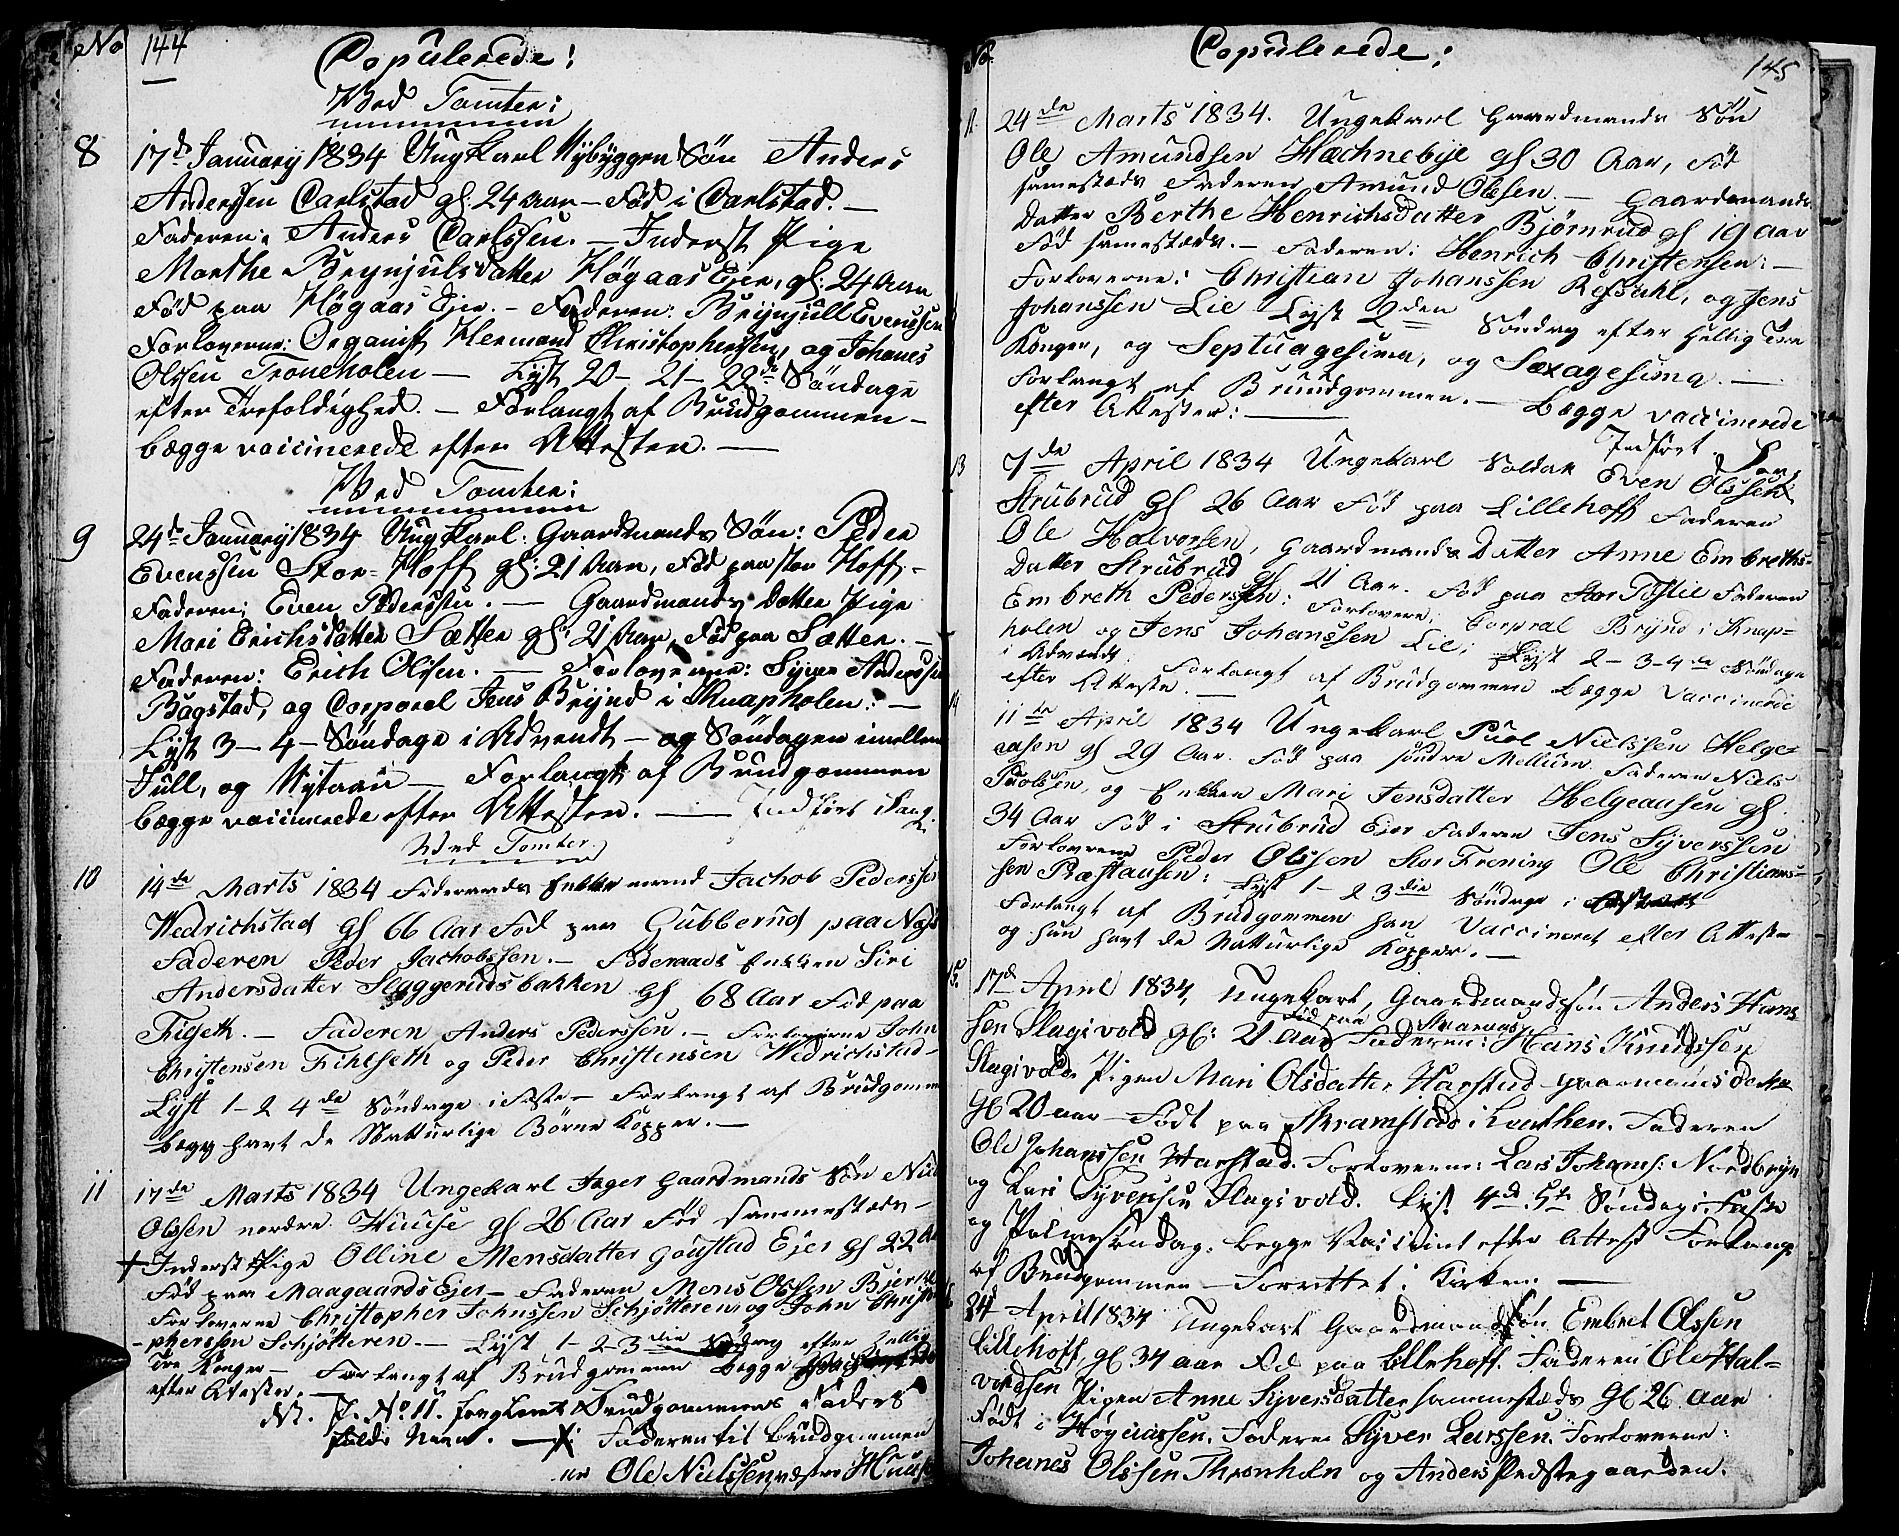 No 144
Copulerede!
Wed Tomter:
8 17de Januarÿ 1834 Ungkarl Nÿbÿggen Søn Anders
Anderssen Carlstad gl: 24 Aar – Fød i Carlstad. –
Faderen: Anders Carlssen. – Inderst Pige
Marthe Brynjulsdatter Høgaas Ejer, gl: 24 Aar
Fød paa Høgaas Ejer. – Faderen: Brÿnjull Evenssen
Forloverne: Organist Hermand Christophersen, og Johanes
Olssen Troneholen – Lÿst 20 – 21 – 22de Søndage
efter Trefoldighed. – Forlangt af Brudgommen –
begge vaccinerede efter Attester. –
Wed Tomter:
9 24de Januarÿ 1834 Ungkarl: Gaardmands Søn: Peder
Evenssen Stor-Hoff gl: 21 Aar, Fød paa stor Hoff. –
Faderen: Even Pederssen. – Gaardmands Datter Pige
Mari Erichsdatter Sætter gl: 21 Aar, Fød paa Sætter. –
Faderen: Erich Olssen. – Forloverne: Syver Anderssen
Bagstad, og Corporal Jens Brÿnd i Knapholen. –
Lÿst 3 – 4 – Søndage i Advendt – og Søndagen imellem
Jull, og Nytaar – Forlangt af Brudgommen
begge vaccinerede efter Attester. – Indført
Wed Tomter.
10 14de Marts 1834 Føderaads Enkemand Jachob Pederssen
Wedrichstad gl 66 Aar Fød paa Gubberud paa Næs
Faderen Peder Jachobssen. – Føderaads Enken Siri
Andersdatter Slaggerudsbakken gl 68 Aar Fød paa
Figeth. – Faderen Anders Pederssen. – Forloverne John
Christensen Fihlseth og Peder Christensen Wedrichstad –
Lÿst 1 – 2 4de Søndage i Faste – Forlangt af Brudgommen
begge havt de Naturlige Børne Kopper. –
11 17de Marts 1834 Ungekarl Jæger Gaardmands Søn Niels
Olssen nordre Huuse gl 26 Aar Fød sammesteds –
Inderst Pige Olline Mensdatter Goustad Ejer gl 22 Aar
Fød paa Maagaards Ejer – Faderen Mons Olssen Bierke
Forloverne Christopher Johnssen Schjøtteren og John Christo-
-phersen Schjøtteren. – Lÿst 1 – 2 – 3die Søndag efter Hellig
Tre Konger – Forlangt af Brudgommen begge
efter Attester. –
NB. P. No 11. forglemt Brudgommens Faders
fulde Navn. – Faderen til Brudgommen
er Ole Nielssen, vestre Huuse
No. Copulerede: 145
24de Marts 1834. Ungekarl Gaardmands Søn
Ole Amundsen Hæchnebÿe gl 30 Aar, Fød
sammesteds Faderen Amund Olssen. – Gaardmands
Datter Berthe Henrichsdatter Bjørnrud gl 19 Aar
Fød sammesteds. – Faderen: Henrich Christensen: –
Forloverne: Christian Johanssen Refsahl, og Jens
Johanssen Lie Lÿst 2den Søndag efter Hellig Tre
Konger, og Septuagesima, og Sexagesima. –
Forlangt af Bruudgommen. – begge vaccinerede
efter Attester: –
Indført
13 7de April 1834 Ungekarl Soldat Even Olssen
Strubrud gl 26 Aar Fød paa Lillehoff Faderen
Ole Halvorsen, Gaardmands Datter Anne Embreths-
Datter Strubrud gl 21 Aar. Fød paa Stor Tostie Faderen
Embreth Pederssen: Forlovere: Corpral Brÿnd i Knap-
holen og Jens Johanssen Lie; Lÿst 2 – 3 – 4de Søndage
i Advendt. Forlangt af Brudgommen begge Vaccinerede
efter Atteste. –
14 11te April 1834 Ungekarl Puol Nielssen Helge-
ausen gl 29 Aar. Fød paa søndre Mellum Faderen Niels
Puolssen, og Enken Mari Jensdatter Helgeausen gl.
34 Aar Fød i Strubrud Ejer Faderen Jens Syverssen
Forlovrene Peder Olssen Stor Frening Ole Christians-
sen Ræstausen: Lÿst 1 – 2 3die Søndage i
Forlangt af Brudgommen han Vaccineret efter Atteste
og hun havt de Natturlige Kopper. –
15 17de April 1834, Ungekarl, Gaardmandssøn Anders Hans
sen Slagivold gl: 21 Aar Fød paa Faderen: Hans Knudssen
Slagivold Pigen Mari Olsdatter Harstad Gaarmands datter
Gl 20 aar – Født paa Skramstad i Løuthen. Faderen
Ole Johanssen Harstad. Forloverne: Lars Johans: Nordbrÿn
og Lars Syversen Slagivold. Lyst 4de 5te Søndag i Faste
og Palmesøndag. begge Vaccint efter Attest Forlangt
af Brudgommen – Forrettet i Kirken. –
24de April 1834 Ungekarl Gaardmandssøn Embret Olssen
Lillehoff, gl 34 aar Fød paa Lillehoff. Faderen Ole Hal-
vordsen Pigen Anne Syversdatter sammesteds Gl 26 Aar
Født i Høgaassen. Faderen Syver Larssen. Forloverne:
Johannes Olssen Thronholen og Anders Prestegaarden.